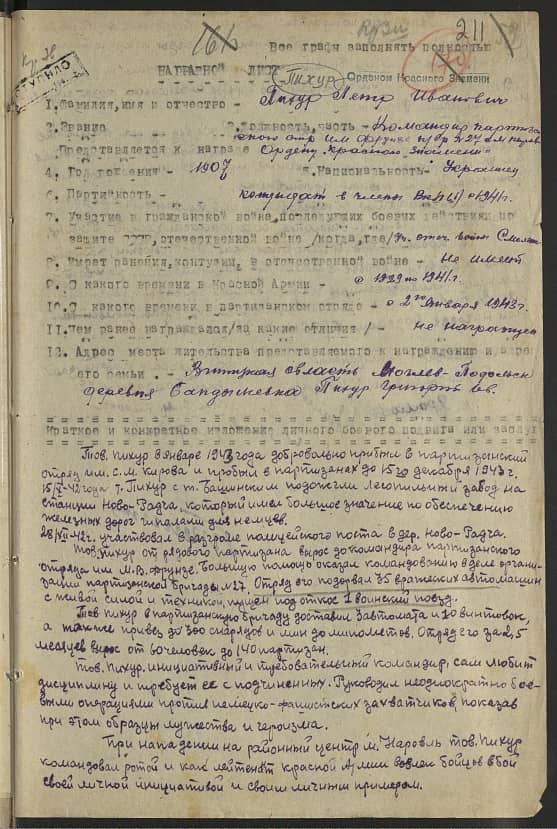 211
Все графы заполнять полностью
НАГРАДНОЙ ЛИСТ
Пихур Орденом Красного Знамени
1.Фамилия,имя и отчество - Пихур Петр Иванович
2.Звание 3.Должность,часть - Командир партиза
Представляется к награде Ордену "Красное Знамени"
4. Год рождения - 1907 5.Национальность - Украинец
6. Партийность - кандидат в члены ВКП(б) с 1941г.
7. Участие в гражданской войне,последующих боевых действиях по
защите СССР,отечественной войне /когда,где/
8. Имеет ранения,контузии, в отечественной войне - не имеет
9. С какого времени в Красной Армии - с 1939 по 1941г.
10.С какого времени в партизанском отряде - с 2го января 1943г.
11.Чем ранее награждался/за какие отличия / - не награжден
12. Адрес места жительства представляемого к награждению и адрес
его семьи. - область Могилев-Подольск
деревня Пихур
Краткое и конкретное изложение личного боевого подвига или заслуг
Тов. Пихур в январе 1943 года добровольно прибыл в партизанский
отряд им. С.М. Кирова и пробыл в партизанах до 15го декабря 1943 г.
т. Пихур с т. подожгли лесопильный завод на
станции Ново-Радча, который имел большое значение по обеспечению
железных дорог шпалами для немцев.
участвовал в разгроме полицейского поста в дер. Ново-Радча.
Тов. Пихур от рядового партизана вырос до командира партизанского
отряда им. М.В. Фрунзе. Большую помощь оказал командованию в деле органи-
зации партизанской бригады №27. Отряд его подорвал 35 вражеских автомашин
с живой силой и техникой, пущен под откос 1 воинский поезд.
Тов Пихур в партизанскую бригаду доставил 3 автомата и 10 винтовок,
а также привез до 300 снарядов и мин до минометов. Отряд его за 2,5
месяцев вырос от 60 человек до 140 партизан.
Тов. Пихур, инициативный и требовательный командир, сам любит
дисциплину и требует ее с подчиненных. Руководил неоднократно бое-
выми операциями против немецко-фашистских захватчиков, показав
при этом образцы мужества и героизма.
При нападении на районный центр м. Наровль тов. Пихур
командовал ротой и как лейтенант Красной Армии бойцов в бой
своей личной инициативой и своим личным примером.